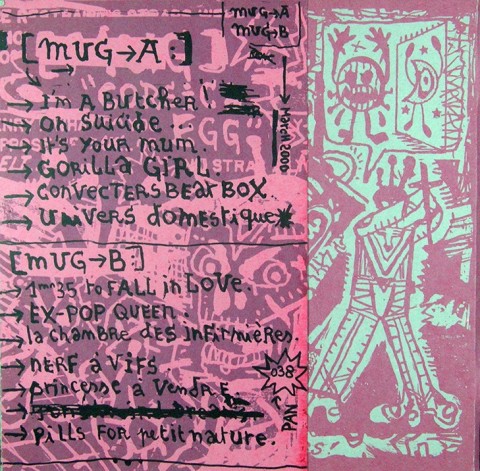 MUG→A
MUG→B
[MUG→A:]
→ I'M A BUTCHER!
→ OH SUICIDE...
→ IT'S YOUR MUM.
→ GORILLA GIRL.
→ CONVECTERS BEAT BOX
→ UNIVERS domestique
MARCH 2000
[MUG→B:]
→ 1mn35 to FALL in LOVE.
→ EX-POP QUEEN.
→ la chambre dES inFirmières.
→ NERF à ViFS.
→ princesse à VENDRE
→ pills FOR petit nature.
038
PAN
EGG"
STRA